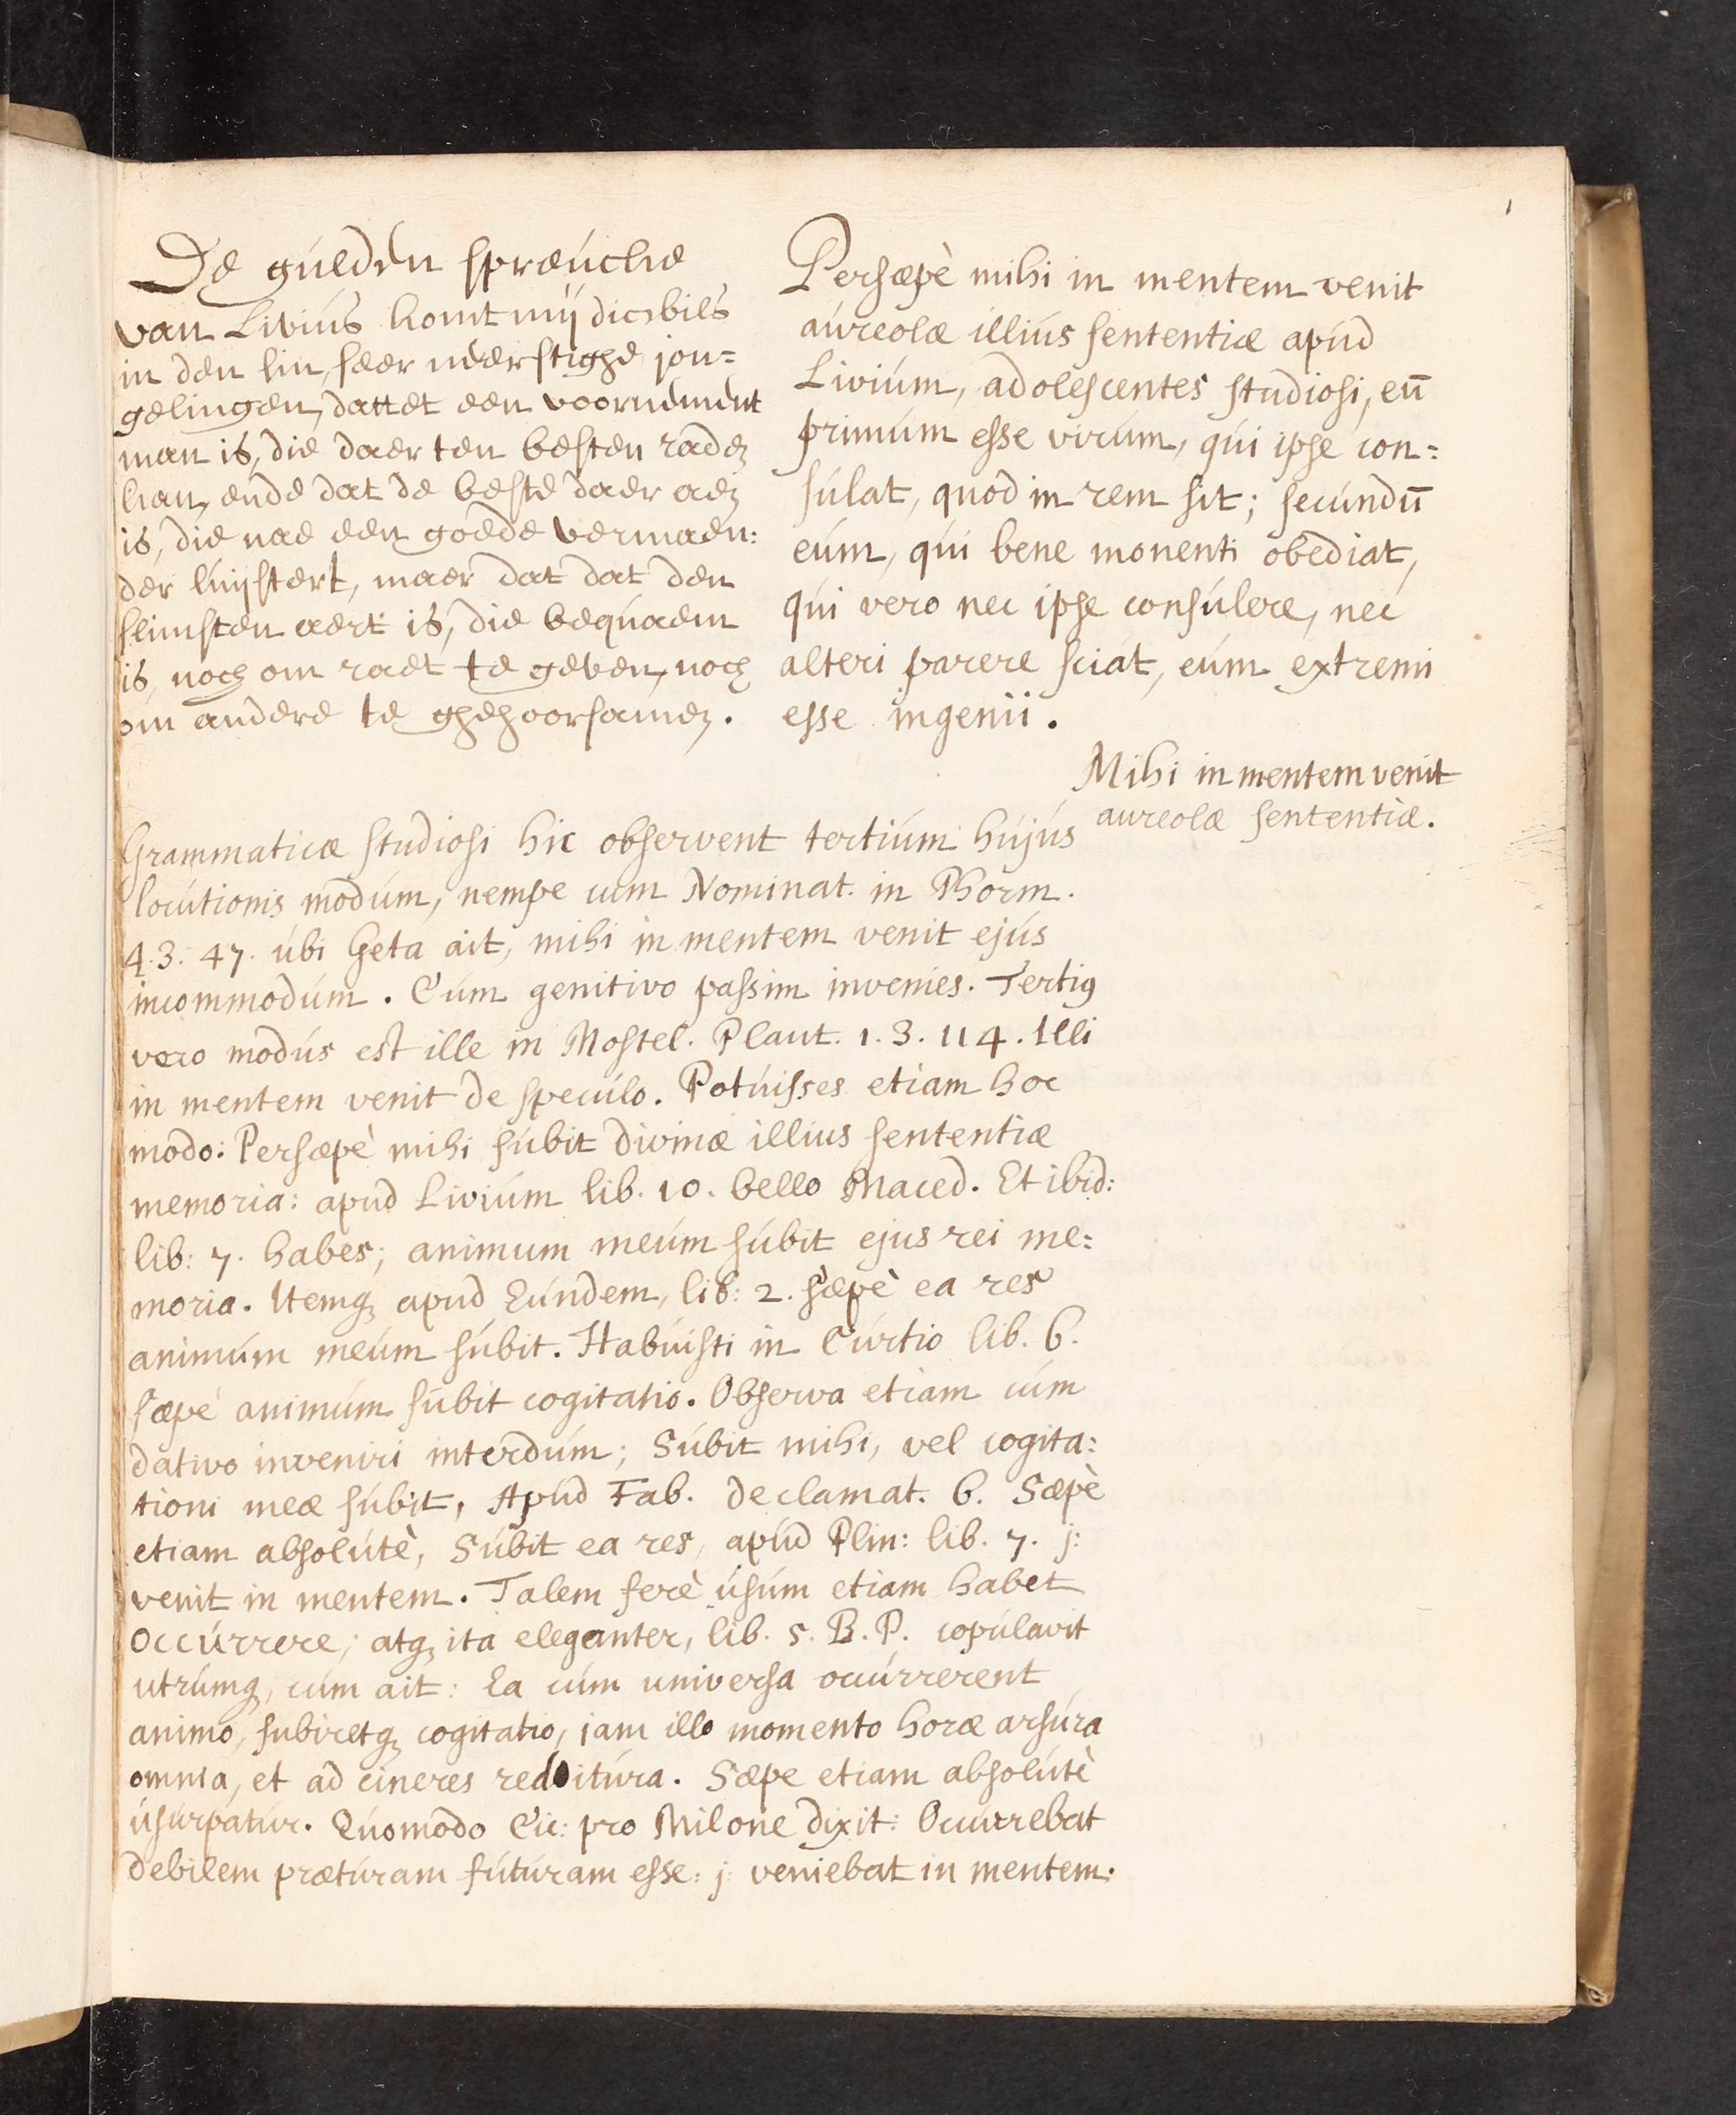 1
De gulden spreucke
van Livius komt mij dicwils
in den sin, seer neerstighe jon=
gelingen, dattet een voornement
man is, die daer ten besten raden
kan, ende dat de beste daer aen
is, die nae een goede vermaen:
der luijstert, maer dat dat den
slimsten aert is, die bequaem
is, noch om raet te geven, noch
om andere te ghehoorsamen.
Persæpè mihi in mentem venit
aureolæ illius sententiæ apud
Livium, adolescentes studiosi, eū
primum esse virum, qui ipse con=
sulat, quod in rem sit; secundū
eum, qui bene monenti obediat,
qui vero nec ipse consulere, nec
alteri parere sciat, eum extremi
esse ingenii.
Mihi in mentem venit
aureolæ sententiæ.
Grammaticæ studiosi hic observent tertium hujus
locutionis modum, nempe cum Nominat. in Phorm.
4. 3. 47. ubi Geta ait, mihi in mentem venit ejus
incommodum. Cum genitivo passim invenies. Tertiꝰ
vero modus est ille in Mostel. Plaut. 1. 3. 114. Illi
in mentem venit de speculo. Potuisses etiam hoc
modo: Persæpè mihi subit divinæ illius sententiæ
memoria: apud Livium lib. 10. bello Maced. Et ibid:
lib: 7. habes; animum meum subit ejus rei me=
moria. Itemqꝫ apud Eundem, lib: 2. sæpè ea res
animum meum subit. Habuisti in Curtio lib. 6.
sæpè animum subit cogitatio. Observa etiam cum
dativo inveniri interdum; Subit mihi, vel cogita:
tioni meæ subit, Apud Fab. declamat. 6. Sæpè
etiam absolutè, Subit ea res, apud Plin: lib. 7. j:
venit in mentem. Talem ferè usum etiam habet
occurrere; atqꝫ ita eleganter, lib. 5. B. P. copulavit
utrumqꝫ, cum ait: Ea cum universa occurrerent
animo, subiretqꝫ cogitatio, jam illo momento horæ arsura
omnia, et ad cineres reditura. Sæpe etiam absolutè
usurpatur. Quomodo Cic: pro Milone dixit: Occurrebat
debilem præturam futuram esse: j: veniebat in mentem.